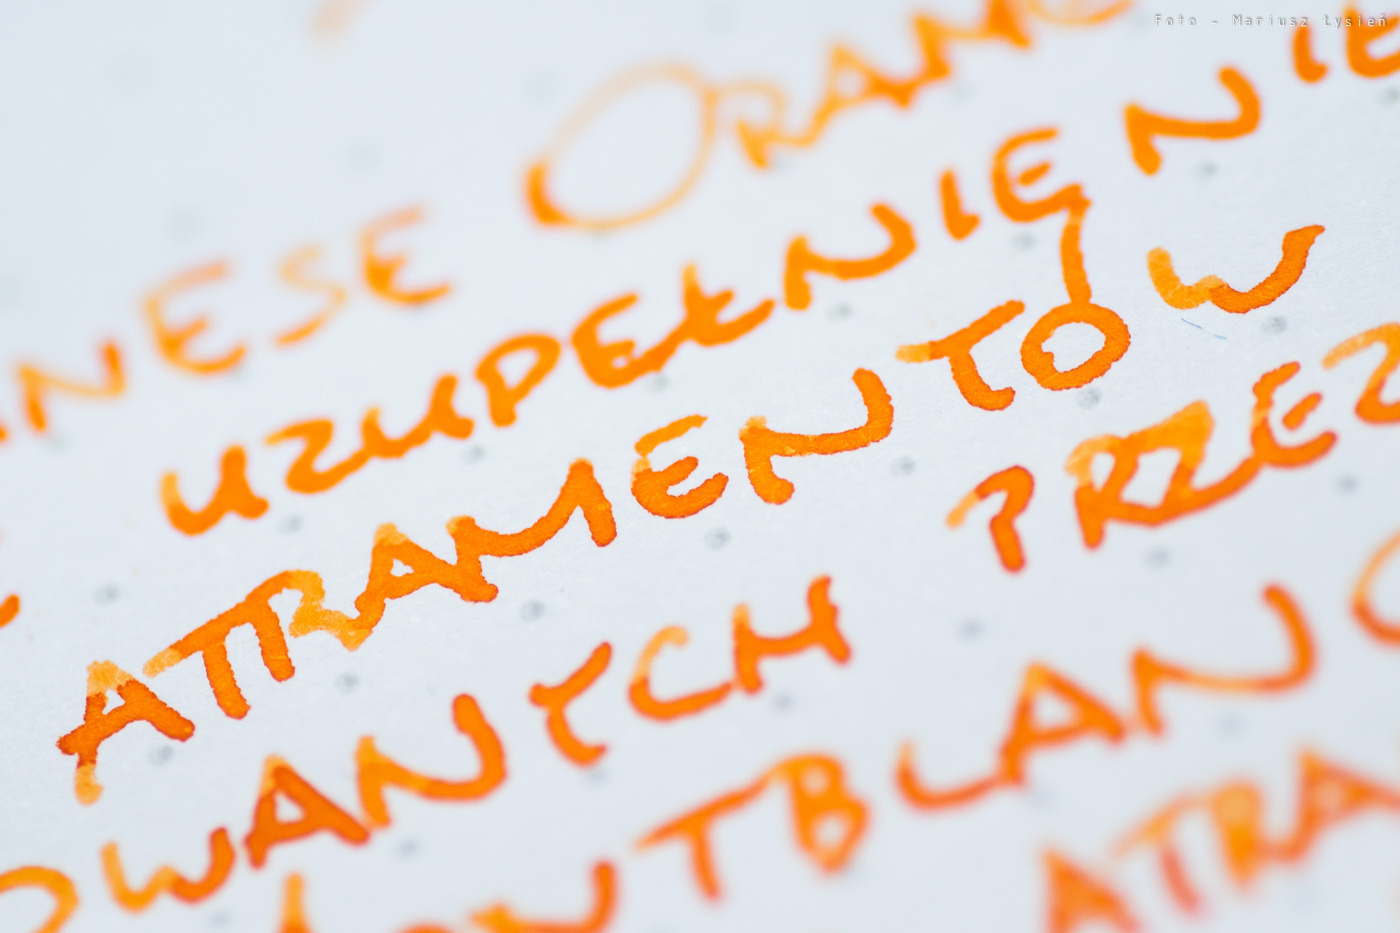 Foto - Mariusz Łysień
NESE ORAN
UZUPEŁNIENIE
ATRAMENTÓW
OWANYCH PRZEZ
ONTBLANC
ATRA